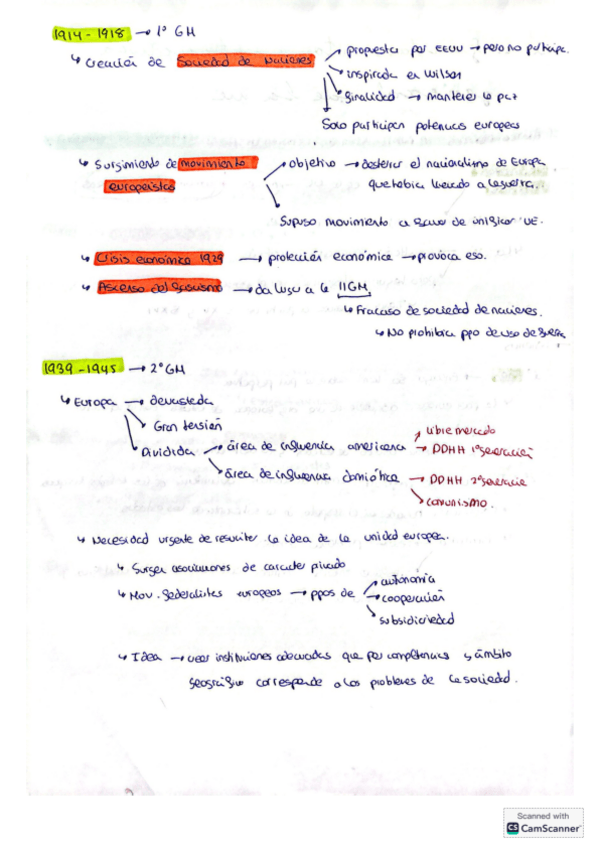 1914 - 1918 → 1º GM
↳ Creación de Sociedad de Naciones
→ propuesta por EEUU → pero no participa.
→ inspirada en Wilson
→ finalidad → mantener la paz
Solo participan potencias europeas
↳ Surgimiento de movimiento europeístas
→ objetivo → desterrar el nacionalismo de Europa
que había llevado a la guerra.
Supuso movimiento a favor de unificar UE.
↳ Crisis económica 1929 → protección económica → provoca eso.
↳ Ascenso del fascismo → da lugar a la IIGM
↳ Fracaso de sociedad de naciones.
↳ No prohibía ppo de uso de fuerza
1939 - 1945 → 2º GM
↳ Europa → devastada
→ Gran tensión
→ Dividida → área de influencia americana → libre mercado
→ DDHH 1º generación
→ área de influencia → DDHH 2º generación
→ comunismo.
↳ Necesidad urgente de resucitar la idea de la unidad europea.
↳ Surgen asociaciones de caracter privado
↳ Mov. federalistas europeos → ppos de → autonomía
→ cooperación
→ subsidiariedad
↳ Idea → crear instituciones adecuadas que por competencias y ámbito
geográfico corresponde a los problemas de la sociedad.
Scanned with
CS CamScanner